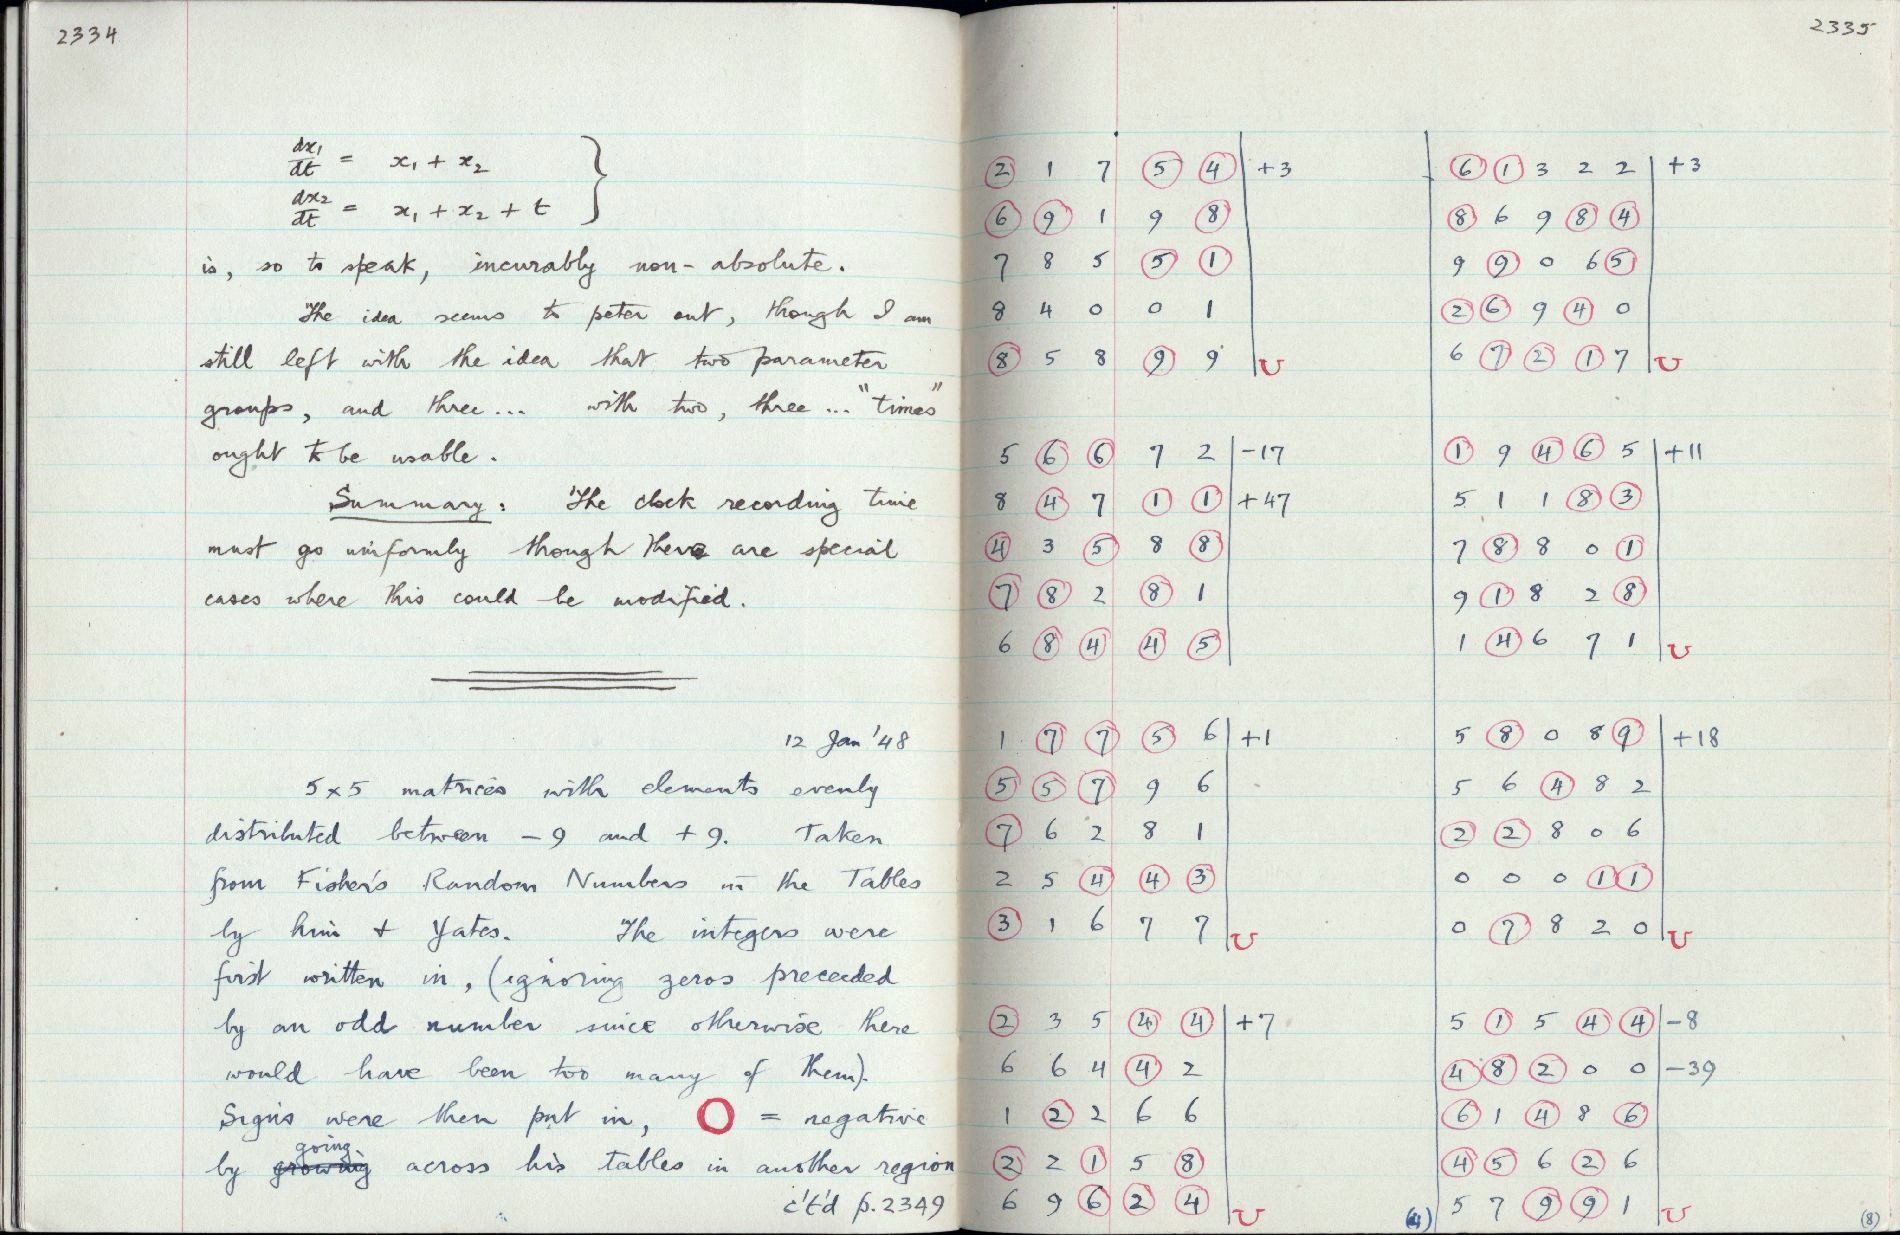 2334
dx₁/dt = x₁ + x₂
dx₂/dt = x₁ + x₂ + t
is, so to speak, incurably non-absolute.
The idea seems to peter out, though I am
still left with the idea that two parameter
groups, and three... with two, three ... "times"
ought to be usable.
Summary: The clock recording time
must go uniformly though there are special
cases where this could be modified.
12 Jan '48
5×5 matrices with elements evenly
distributed between -9 and +9. Taken
from Fisher's Random Numbers in the Tables
by him + Yates. The integers were
first written in, (ignoring zeros preceeded
by an odd number since otherwise there
would have been too many of them).
Signs were then put in, O = negative
by growing going across his tables in another region
c't'd p.2349
2335
2 1 7 5 4 +3
6 9 1 9 8
7 8 5 5 1
8 4 0 0 1
8 5 8 9 9 U
5 6 6 7 2 -17
8 4 7 1 1 +47
4 3 5 8 8
7 8 2 8 1
6 8 4 4 5
1 7 7 5 6 +1
5 5 7 9 6
7 6 2 8 1
2 5 4 4 3
3 1 6 7 7 U
2 3 5 4 4 +7
6 6 4 4 2
1 2 2 6 6
2 2 1 5 8
6 9 6 2 4 U
(4)
6 1 3 2 2 +3
8 6 9 8 4
9 9 0 6 5
2 6 9 4 0
6 7 2 1 7 U
1 9 4 6 5 +11
5 1 1 8 3
7 8 8 0 1
9 1 8 2 8
1 4 6 7 1 U
5 8 0 8 9 +18
5 6 4 8 2
2 2 8 0 6
0 0 0 1 1
0 7 8 2 0 U
5 1 5 4 4 -8
4 8 2 0 0 -39
6 1 4 8 6
4 5 6 2 6
5 7 9 9 1 U
(8)